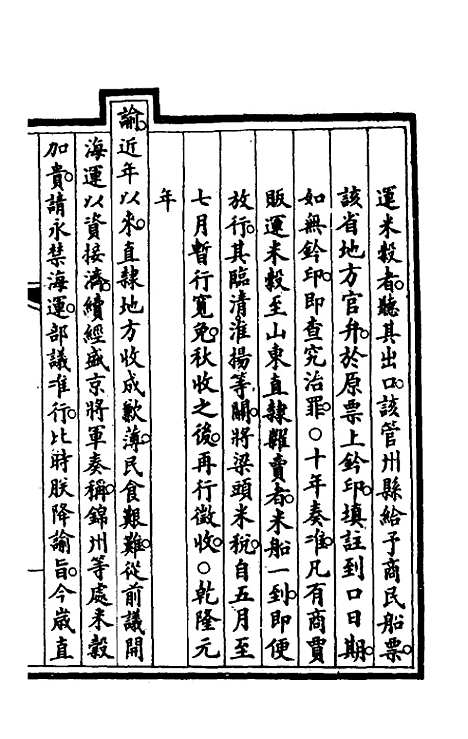 運米穀者聽其出口該管州縣給予商民船票
該省地方官弁於原票上鈐印填註到口日期
如無鈐印即查究治罪○十年奏准凡有商賈
販運米穀至山東直隸糶賣者米船一到即便
放行其臨清淮揚等關將梁頭米稅自五月至
七月暫行寬免秋收之後再行徵收○乾隆元
年
諭近年以來直隸地方收成歉薄民食艱難從前議開
海運以資接濟續經盛京將軍奏稱錦州等處米穀
加貴請永禁海運部議准行比時朕降諭旨今歲直